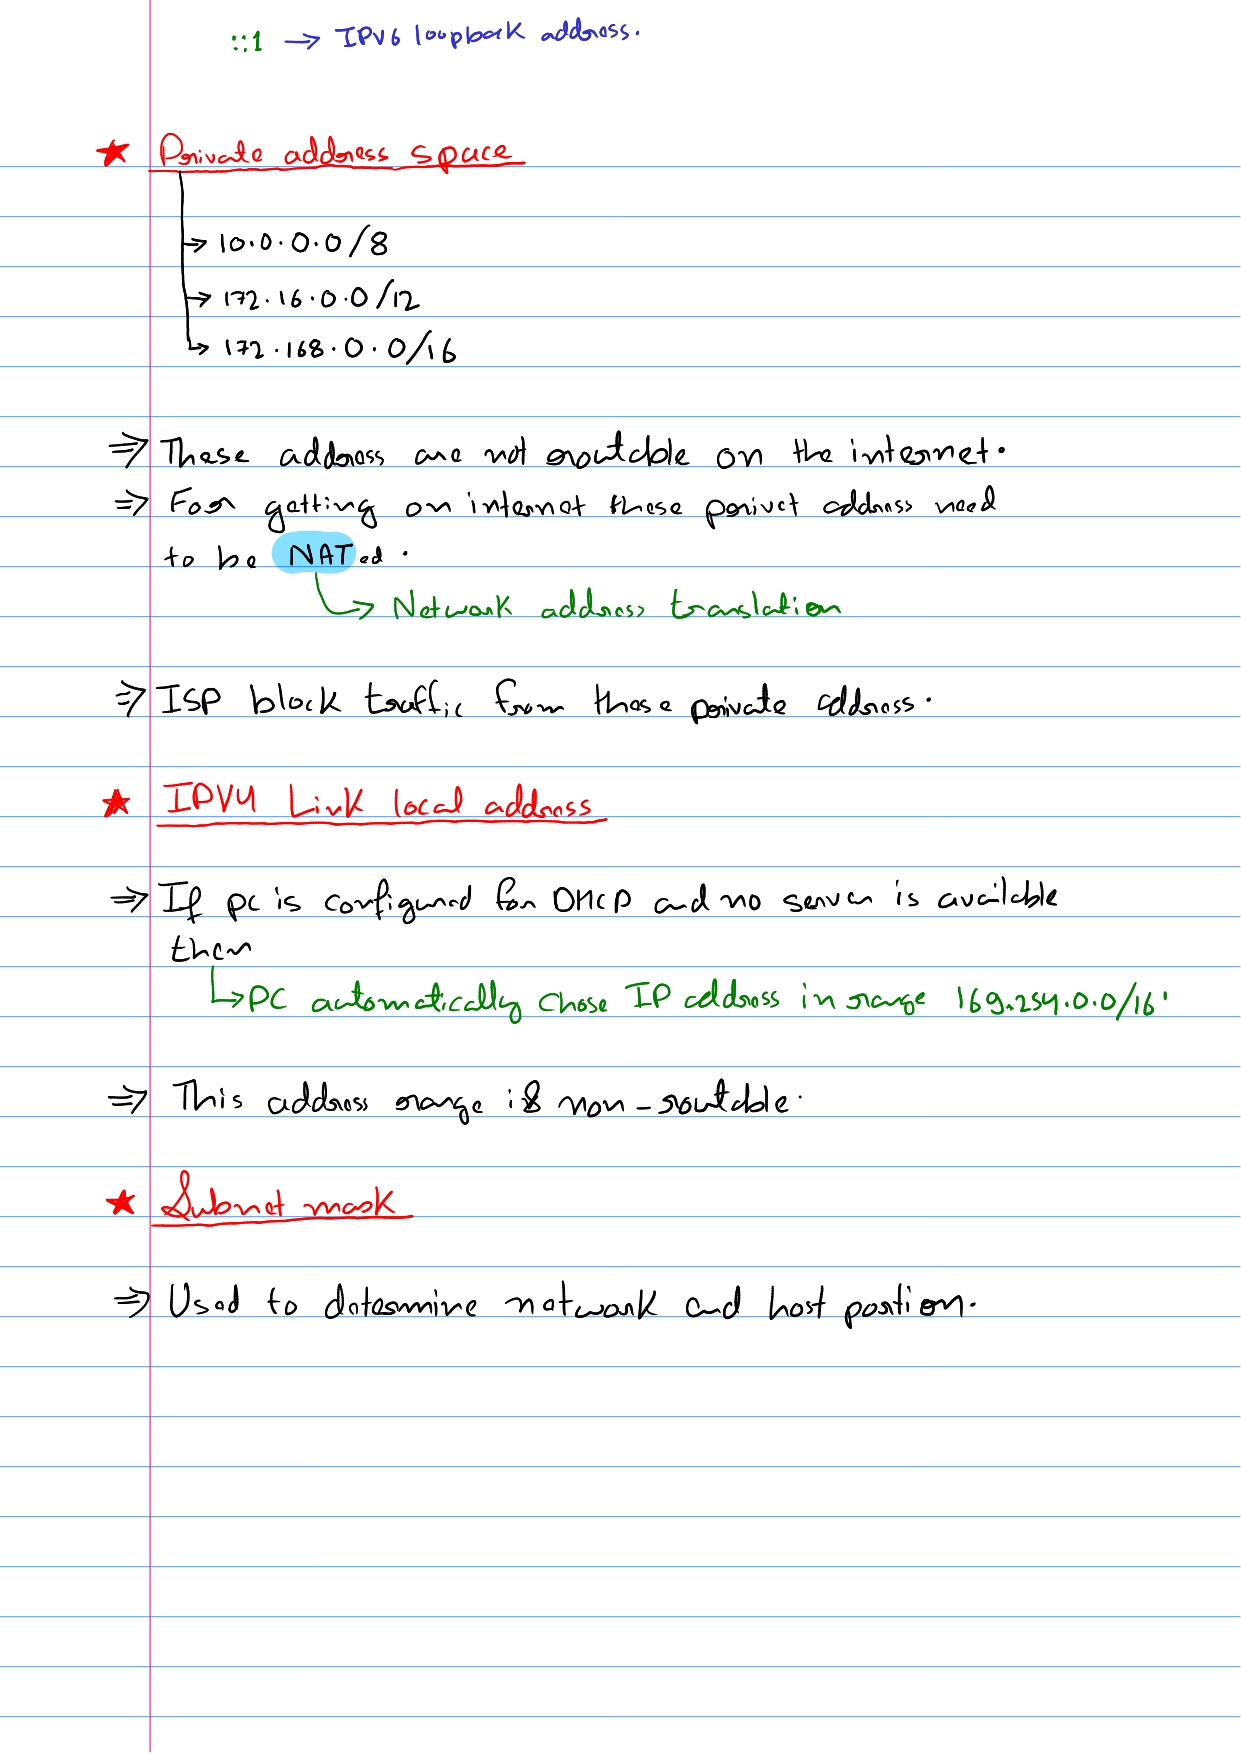 ::1 → IPV6 loopback address.
★ Private address space
→ 10.0.0.0/8
→ 172.16.0.0/12
→ 172.168.0.0/16
⇒ These address are not routable on the internet.
⇒ For getting on internet these privet address need
to be NATed.
→ Network address translation
⇒ ISP block traffic from these private address.
★ IPV4 Link local address
⇒ If pc is configured for DHCP and no server is available
then
→ PC automatically chose IP address in range 169.254.0.0/16
⇒ This address range is non-routable.
★ Subnet mask
⇒ Used to determine network and host portion.